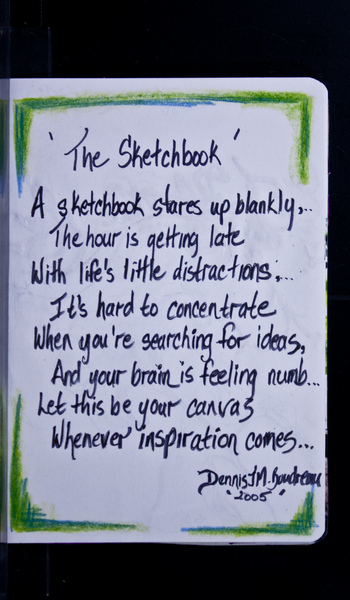 'The Sketchbook'
A sketchbook stares up blankly,..
The hour is getting late
With life's little distractions,...
It's hard to concentrate
When you're searching for ideas,
And your brain is feeling numb...
Let this be your canvas
Whenever inspiration comes...
Dennis J M. Boudreau
"2005"